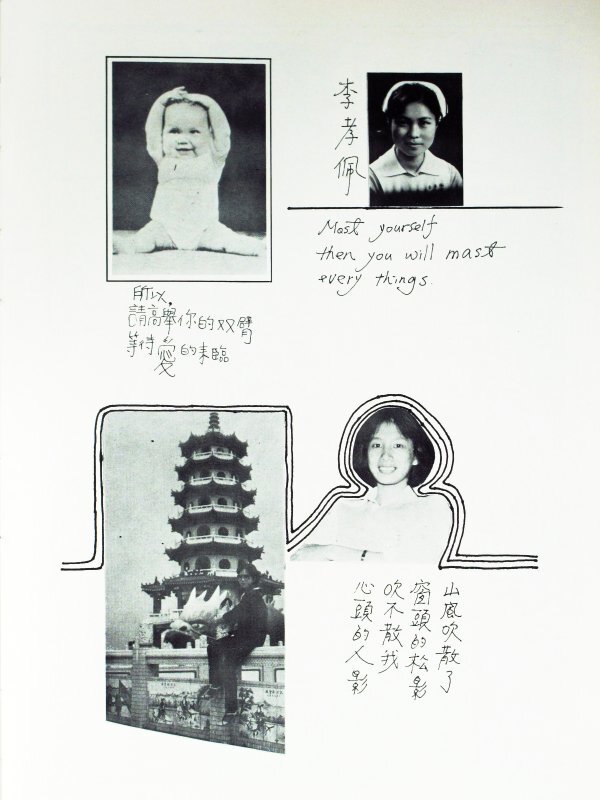 李孝佩
Mast yourself
then you will mast
every things.
所以,
請高舉你的双臂
等待愛的来臨
山風吹散了
窗頭的松影
吹不散我
心頭的人影